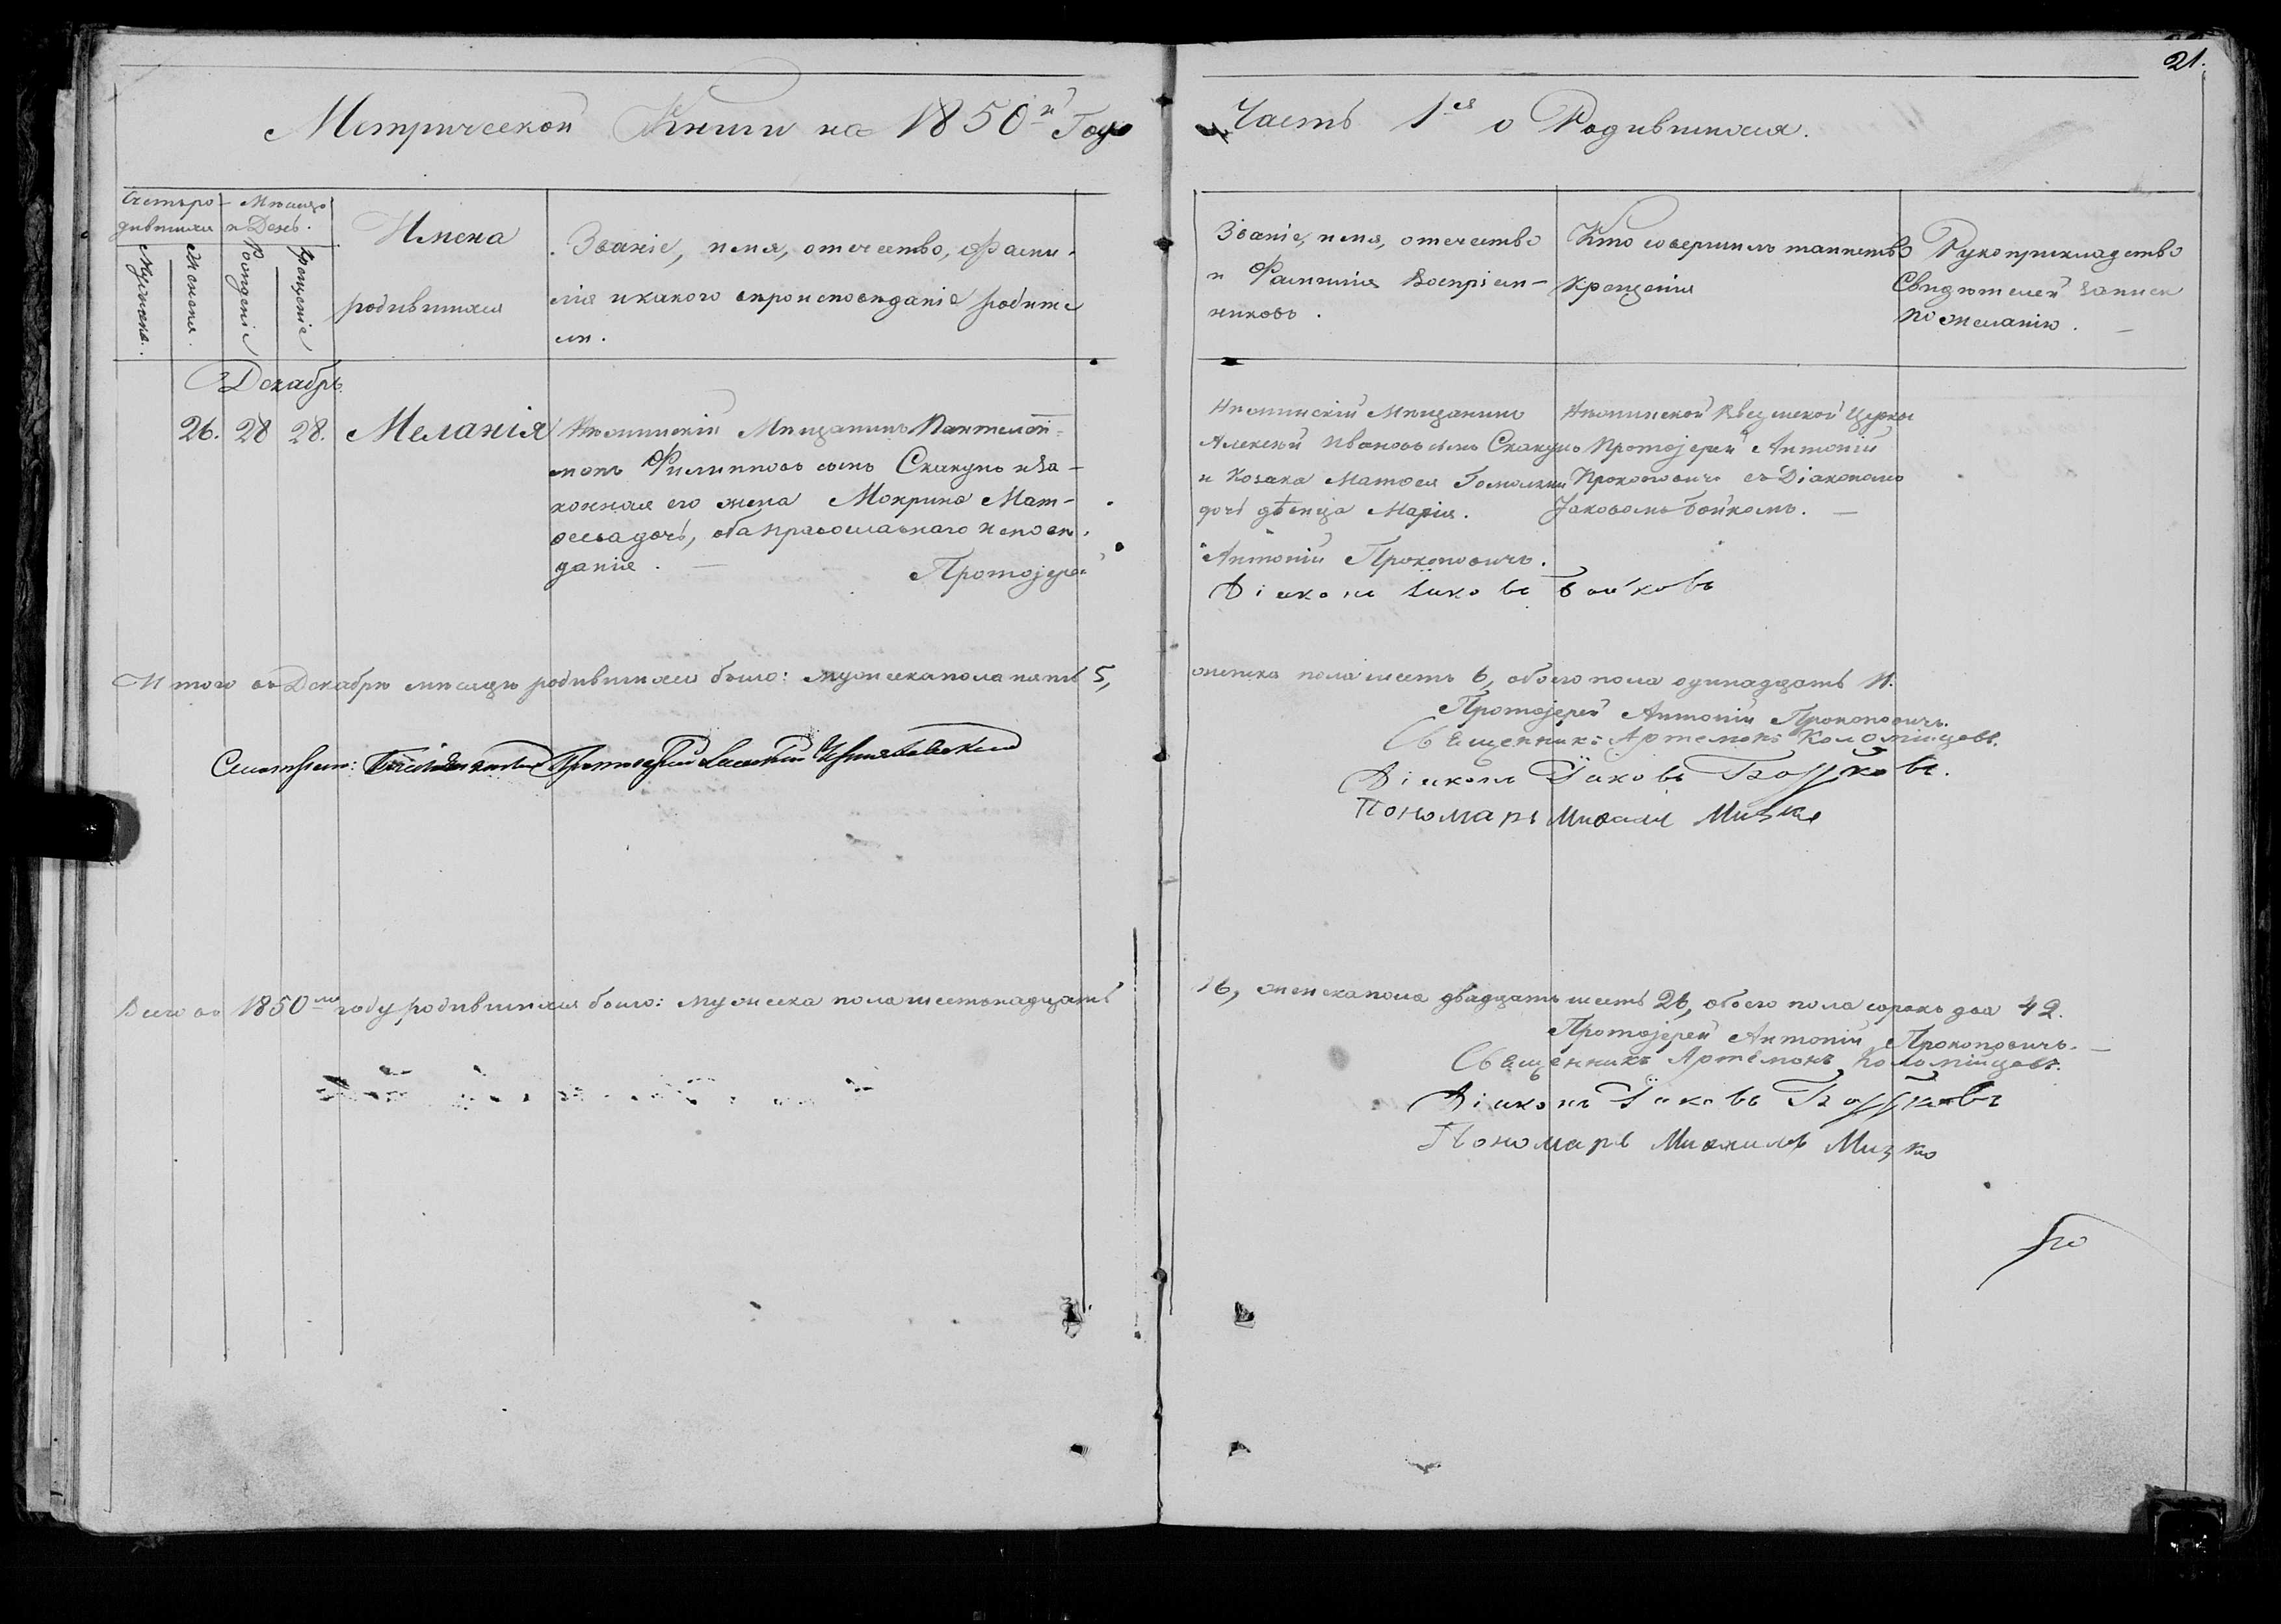 21.
Метрической Книги на 1850й Годъ
Часть 1ая о Родившихся.
Счетъ ро-
дившихся
Мѣсяцъ
и День.
Мужеска.
Женска.
Рожденіе
Крещеніе
Имена
родившихся
Званіе, имя, отечество, Фами-
лія и какого вѣроисповѣданія родите
ли.
Званіе, имя, отечество
и Фамилія Воспріем-
никовъ.
Кто совершилъ таинство
Крещенія
Рукоприкладство
Свидѣтелей записи
по желанію.
Декабрь
26. 28 28. Меланія
Мѣщанинъ Пантелей-
монъ Филипповъ сынъ Скакунъ и За-
конная его жена Мокрина Мат-
ѳеева дочь, оба православнаго исповѣ-
данія.
Протоіерей
Мѣщанинъ
Алексѣй Ивановъ сынъ Скакунъ
и Козака Матѳея
дочь дѣвица Марія.
Введенской Церкви
Протоіерей Антоній
Прокоповичъ съ Діакономъ
Іаковомъ Бойкомъ.
Антоній Прокоповичъ.
Діаконъ Іаковъ Бойковъ
Итого въ Декабрѣ мѣсяцѣ родившихся было: мужеска пола пять 5,
женска пола шесть 6, обоего пола одинадцать 11.
Протоіерей Антоній Прокоповичъ.
Священникъ Артемонъ Коломійцевъ.
Діаконъ Іаковъ Бойковъ.
Пономарь Михаилъ Мизко
Протоіерей
Всего въ 1850мъ году родившихся было: мужеска пола шестьнадцать
16, женска пола двадцать шесть 26, обоего пола сорокъ два 42.
Протоіерей Антоній Прокоповичъ.
Священникъ Артемонъ Коломійцевъ.
Діаконъ Іаковъ Бойковъ
Пономарь Михаилъ Мизко